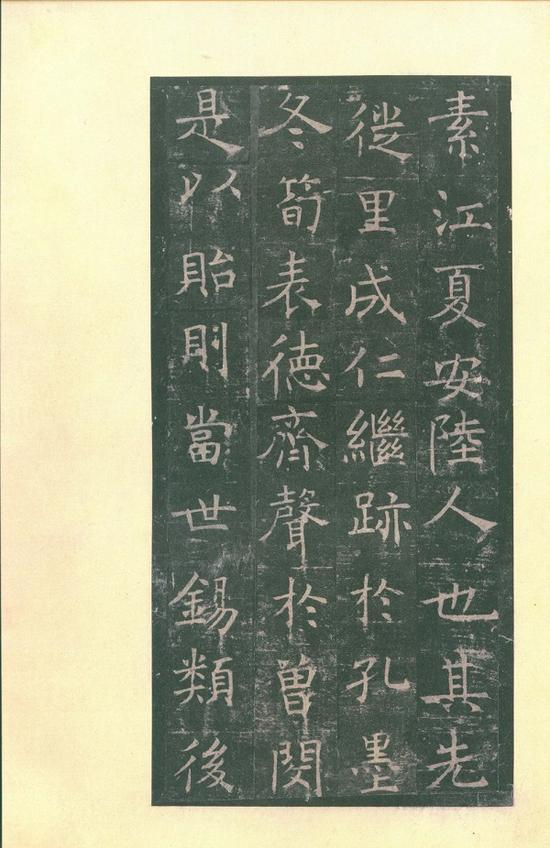 素江夏安陸人也其先
徙里成仁繼跡於孔墨
冬筍表德齊聲於曾閔
是以貽則當世錫類後